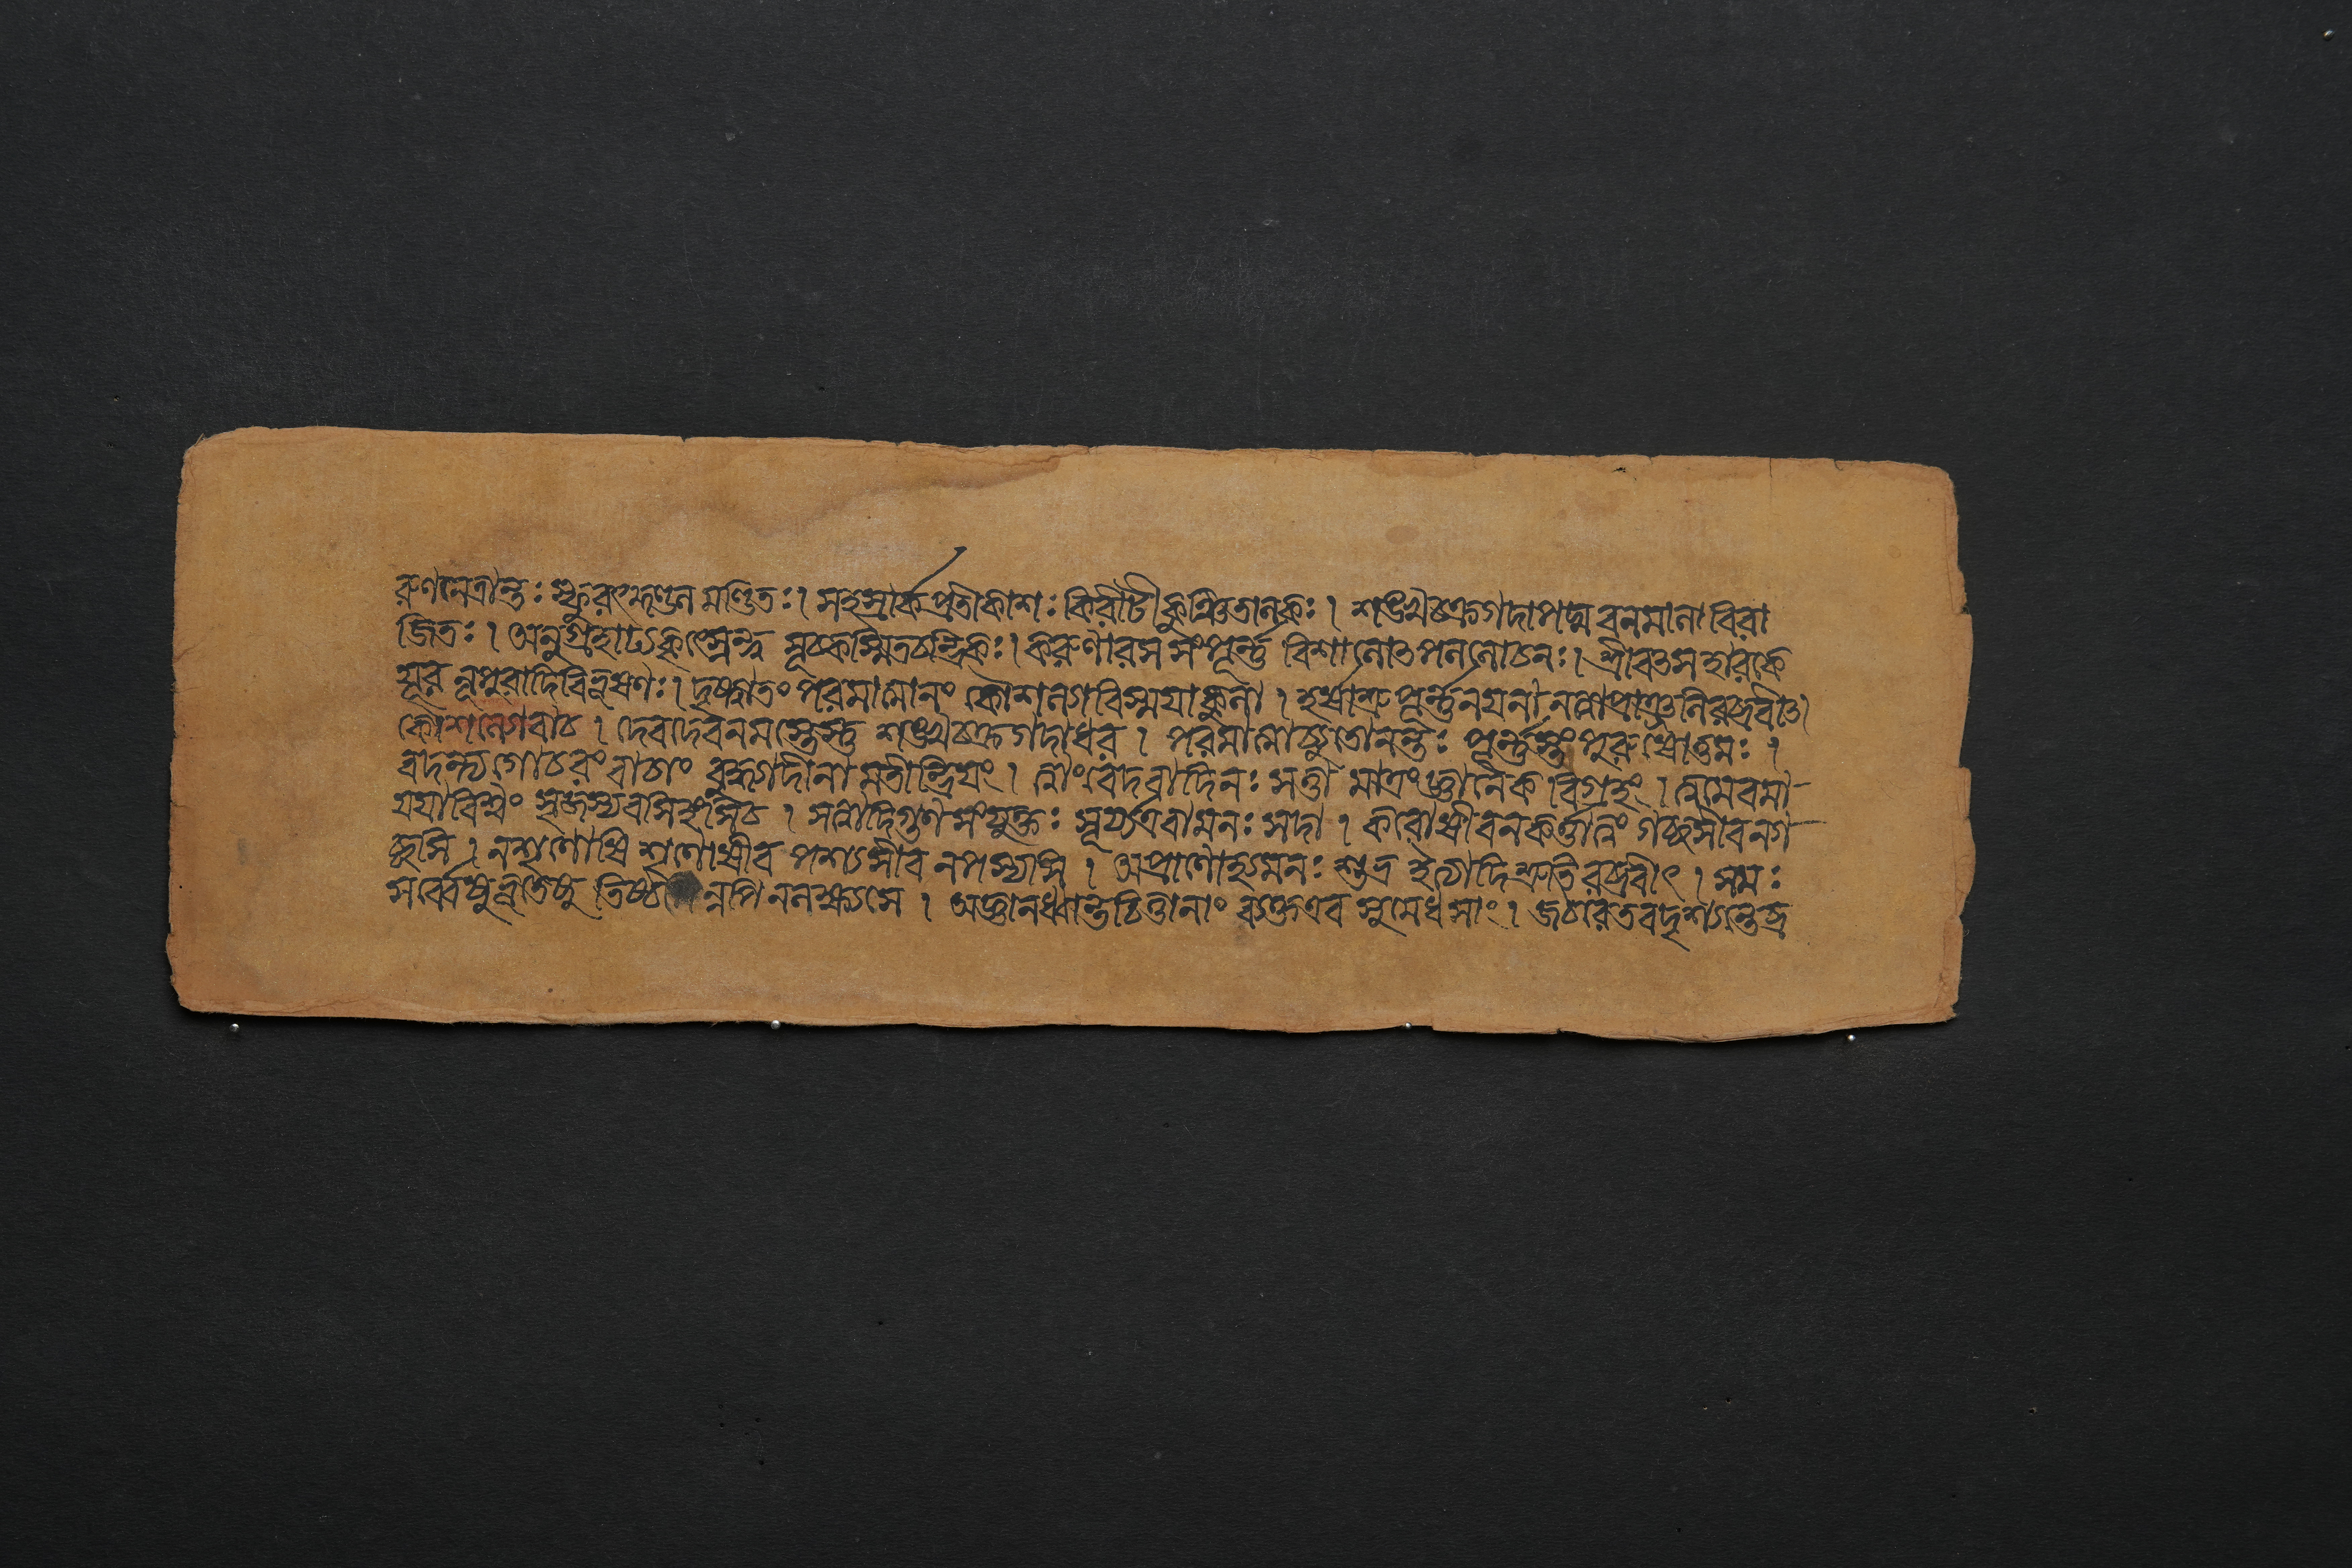 ৰুণনেত্রান্তঃ স্ফুৰৎকুণ্ডল মণ্ডিতঃ। সহস্রার্কপ্রতীকাশঃ কিৰীটী কুঞ্চিতালকঃ। শঙ্খচক্রগদাপদ্মবনমালা বিৰা
জিতঃ। অনুগ্রহাঢ্যহৃৎস্থেন্দু সূচকস্মিতচন্দ্রিকঃ। কৰুণাৰসসংপূর্ন্ন বিশালোৎপললোচনঃ। শ্রীবৎসহাৰকে
যূৰ নূপুৰাদিবিভূষণঃ। দৃষ্ট্বাতং পৰমাত্মানং কৌশল্যাবিস্ময়াকুলা। হর্ষাশ্রুপূর্ন্ননয়না নত্বাপ্রাঞ্জলিৰব্রবীৎ।
কৌশল্যোবাচ। দেবদেবনমস্তেস্তু শঙ্খচক্রগদাধৰ। পৰমাত্মাচ্যুতোনন্তঃ পূর্ন্নস্ত্বং পুৰুষোত্তমঃ।
বদন্ত্যগোচৰং বাচাং বুদ্ধ্যাদীনা মতীন্দ্রিয়ং। ত্বাং বেদবাদিনঃ সত্তা মাত্রং জ্ঞানৈক বিগ্রহং। ত্বমেবমা-
য়য়াবিশ্বং সৃজস্যবসিহংসিচ। সত্বাদিগুণসংযুক্তঃ সূর্য্যএবামলঃ সদা। কৰোষীবনকর্ত্তাত্বং গচ্ছসীবনগ-
চ্ছসি। নশৃণোষি শৃণোষীব পশ্যসীব নপশ্যসি। অপ্রাণোহ্যমনঃ শুদ্ধ ইত্যাদিশ্রুতিৰব্রবীৎ। সমঃ
সর্ব্বেষুভূতেষু ন্নপি নলক্ষ্যসে। অজ্ঞানধ্বান্তচিত্তানাং ব্যক্তএব সুমেধসাং। জঠৰেতবদৃশ্যন্তেব্র